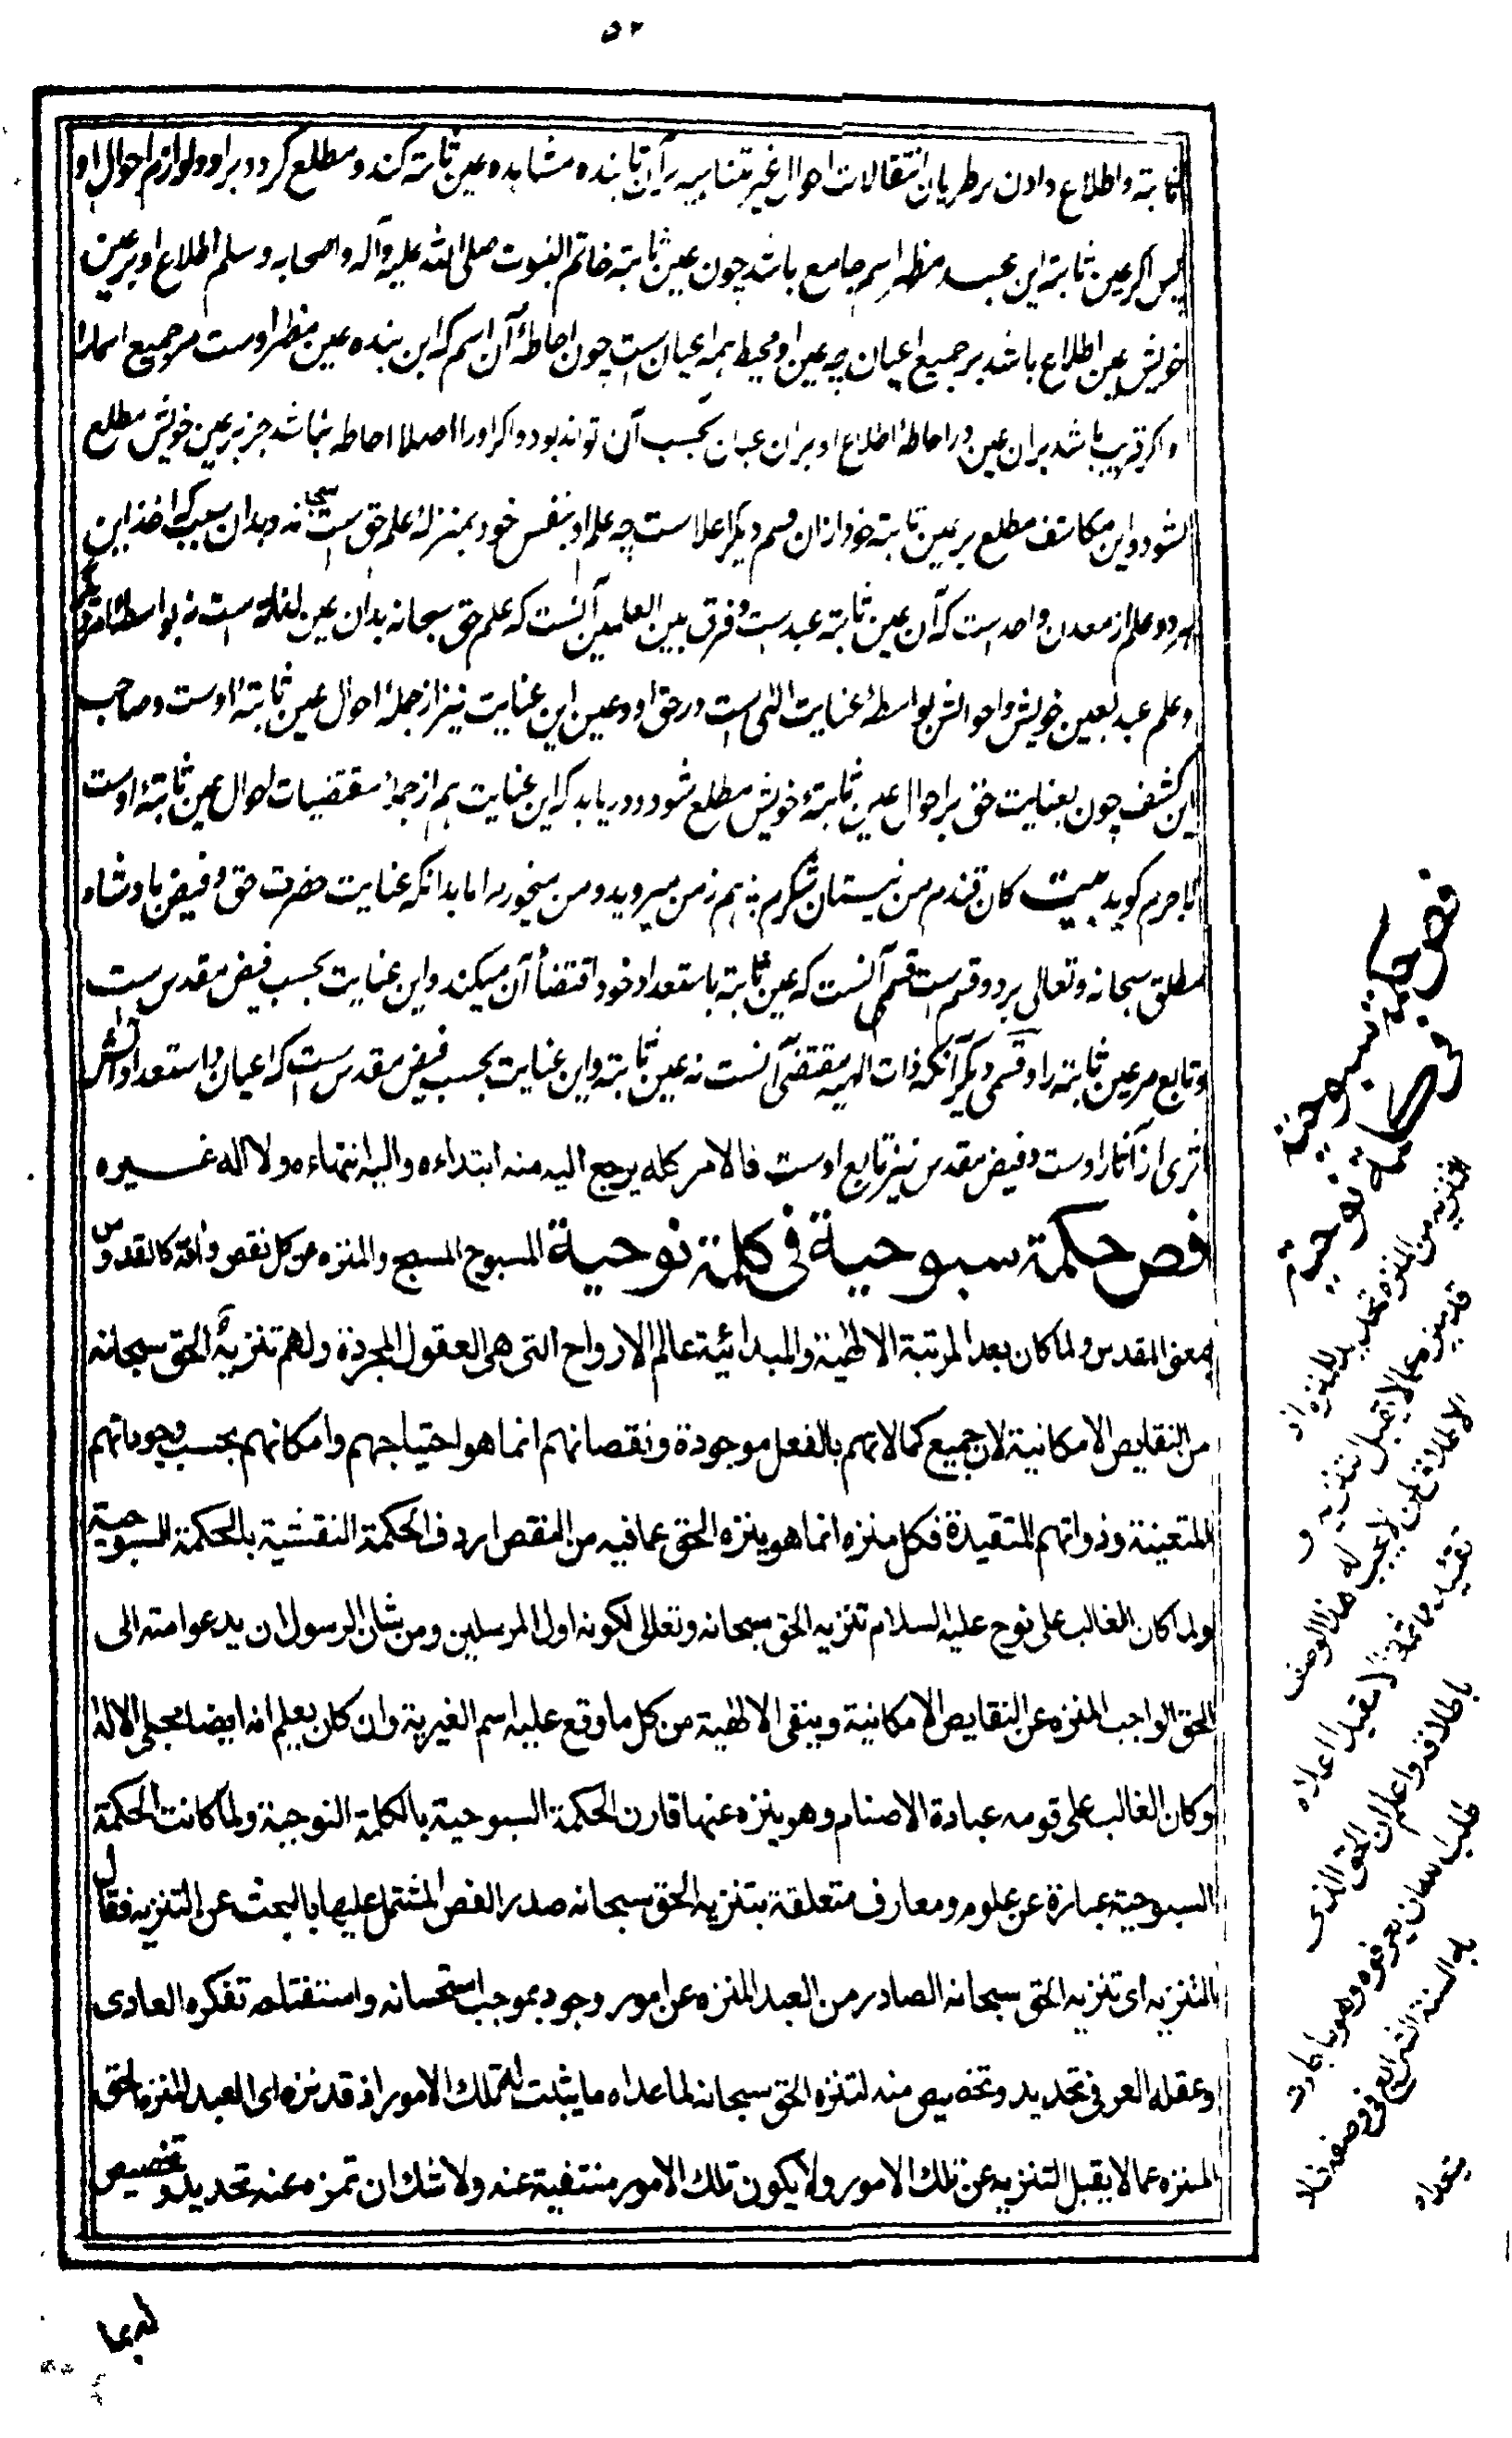 ۵۲
ثابته و اطلاع دادن بر طریان انتقالات احوال غیر متناهیه برآن تا بنده مشاهده عین ثابته کند و مطلع گردد بر او و لوازم احوال او
پس اگر عین ثابته این عبد مظهر اسم جامع باشد چون عین ثابته خاتم النبوت صلی الله علیه وآله واصحابه وسلم اطلاع او بر عین
خویش عین اطلاع باشد بر جمیع اعیان چه عین او محیط همه اعیان ست چون احاطهٔ آن اسم که این بنده عین مظهر اوست مر جمیع اسما را
و اگر قریب باشد بران عین در احاطه اطلاع او بران عیان بحسب آن تواند بود و اگر او را اصلا احاطه نباشد جز بر عین خویش مطلع
نشود و این مکاشف مطلع بر عین ثابته خود ازان قسم دیگر اعلاست چه علم او بنفس خود بمنزلهٔ علم حق ست سبحانه و بدان سبب که اخذ این
هر دو علم از معدن واحد ست که آن عین ثابته عبد ست و فرق بین العلمین آنست که علم حق سبحانه بدان عین لذاته ست نه بواسطهٔ امری دیگر
و علم عبد بعین خویش و احوالش بواسطهٔ عنایت الهی است در حق او و عین این عنایت نیز از جملهٔ احوال عین ثابتهٔ اوست و صاحب
این کشف چون بعنایت حق بر احوال عین ثابتهٔ خویش مطلع شود و دریابد که این عنایت هم از جملهٔ مقتضیات احوال عین ثابتهٔ اوست
لاجرم گوید بیت کان قندم من نیستان شکرم ٭ هم ز من میروید و من میخورم اما بدانکه عنایت حضرت حق و فیض پادشاه
مطلق سبحانه و تعالی بر دو قسم ست قسمی آنست که عین ثابته باستعداد خود اقتضأ آن میکند و این عنایت بحسب فیض مقدس ست
و تابع مر عین ثابته را و قسمی دیگر آنکه ذات الهیه مقتضی آنست نه عین ثابته و این عنایت بحسب فیض مقدس ست که اعیان و استعداداتش
اثری از آثار اوست و فیض مقدس نیز تابع اوست فالامر کله یرجع الیه منه ابتداءه والیه انتهاءه ولا اله غیره
فص حکمة سبوحیة فی کلمة نوحیة السبوح المسبح والمنزه عن کل نقص وآفة کالقدوس
بمعنی المقدس ولما کان بعد المرتبة الالهیة والمبدائیة عالم الارواح التی هی العقول المجردة ولهم تنزیه الحق سبحانه
من النقایص الامکانیة لان جمیع کمالاتهم بالفعل موجودة ونقصانهم انما هو احتیاجهم وامکانهم بحسب وجوداتهم
المتعینة وذواتهم المتقیدة فکل منزه انما هو ینزه الحق عما فیه من النقص اردف الحکمة النفثیة بالحکمة السبوحیة
ولما کان الغالب علی نوح علیه السلام تنزیه الحق سبحانه وتعالی لکونه اول المرسلین ومن شان الرسول ان یدعو امته الی
الحق الواجب المنزه عن النقایص الامکانیة وینفی الالهیة من کل ما وقع علیه اسم الغیریة وان کان یعلم انه ایضا مجلی الاله
وکان الغالب علی قومه عبادة الاصنام وهو ینزه عنها قارن الحکمة السبوحیة بالکلمة النوحیة ولما کانت الحکمة
السبوحیة عبارة عن علوم ومعارف متعلقة بتنزیه الحق سبحانه صدر الفص المشتمل علیها بالبحث عن التنزیه فقال
بالتنزیه ای تنزیه الحق سبحانه الصادر من العبد المنزه عن امور وجود بموجب استحسانه و تفکره العادی
وعقله العرفی تحدید وتخصیص منه لتنزه الحق سبحانه لما عداه ما یثبت له تلک الامور اذ قد نزه ای العبد المنزه الحق
المنزه عما لا یقبل التنزیه عن تلک الامور ولا یکون تلک الامور منتفیة عنه ولا شک ان تمزه عنه تحدید وتخصیص
فص حکمة سبوحیة
فی کلمة نوحیة
التنزیه من المنزه تحدید للمنزه اذ
قد میزه عما لا یقبل التنزیه و
الاطلاق لمن یجب له هذا الوصف
تقیید فما ثمة الا مقید اعلاه
باطلاقه واعلم ان الحق الذی
طلب سبحان یعرفوه وهو ما جاءت
به السنة الشرایع فی وصفه فلا
یتعداه